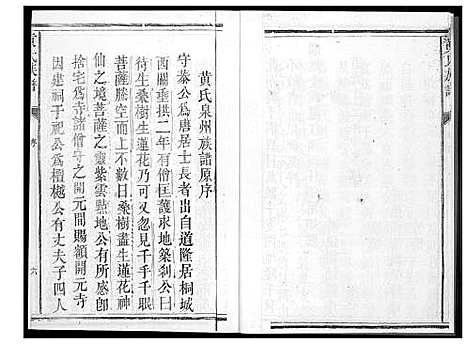 黃氏族譜
黃氏泉州族譜原序
守泰公爲唐居士長者出自道隆居桐城
西關垂拱二年有僧匡護求地築刹公曰
待生桑樹生蓮花乃可又忽見千手千眼
菩薩騰空而上不數日桑樹盡生蓮花神
仙之境菩薩之靈紫雲㸃地公有所感卽
捨宅爲寺諸僧守之開元間賜額開元寺
因建祠于祀公爲檀樾公有丈夫子四人
序
六